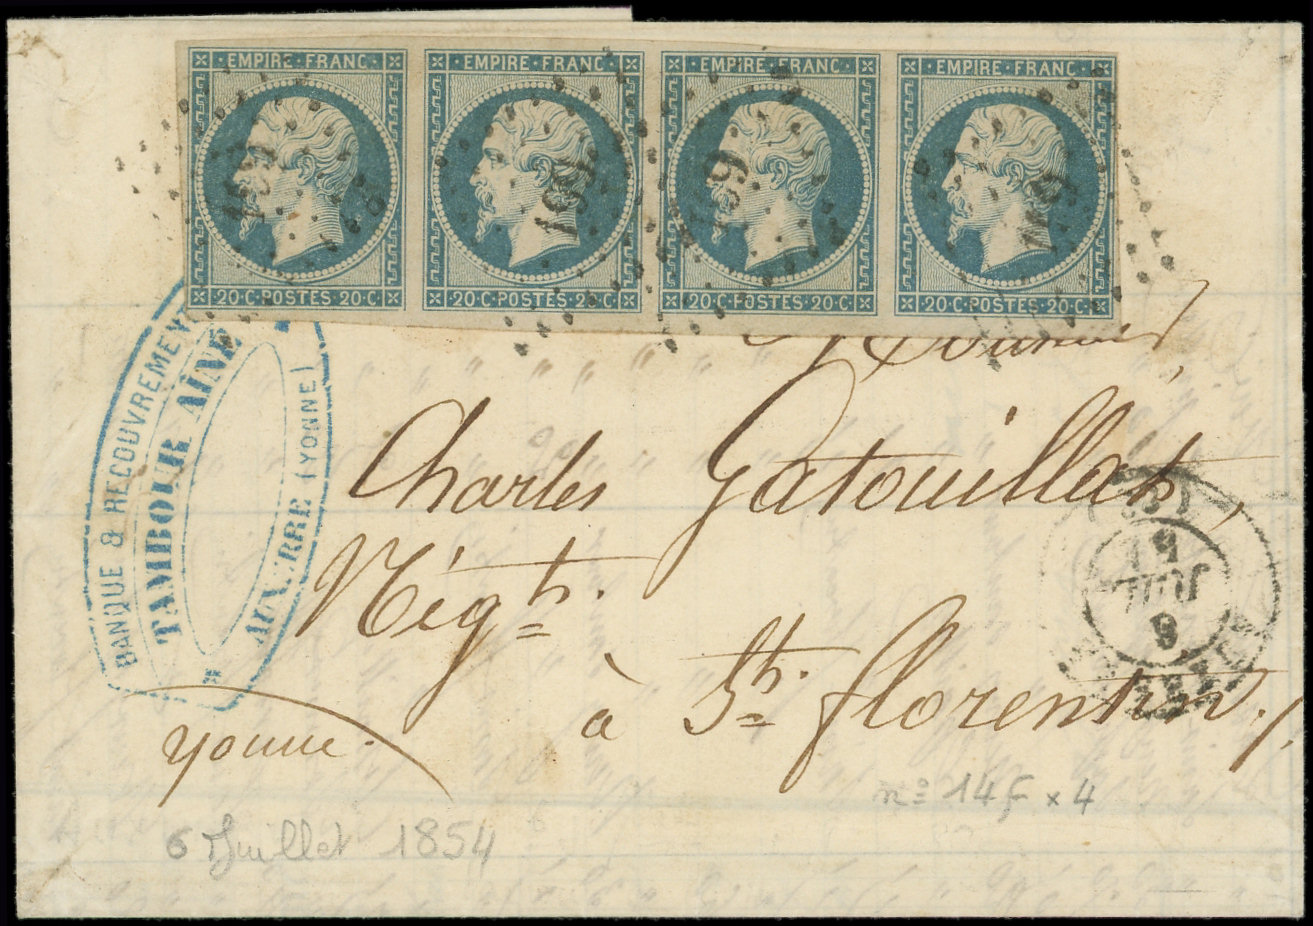 EMPIRE · FRANC · EMPIRE · FRANC · EMPIRE · FRANC · EMPIRE · FRANC ·
199 199 199
20 · C · POSTES 20 · C · 20 · C · POSTES 20 · C · 20 · C · POSTES 20 · C · 20 · C · POSTES 20 · C ·
BANQUE & RECOUVREMEN
TAMBOUR AÎNÉ
AUXERRE (YONNE)
Charles Gatouillat,
Négt.
à St. florentin,
yonne.
6
JUIL
54
6 Juillet 1854
no 14F x 4